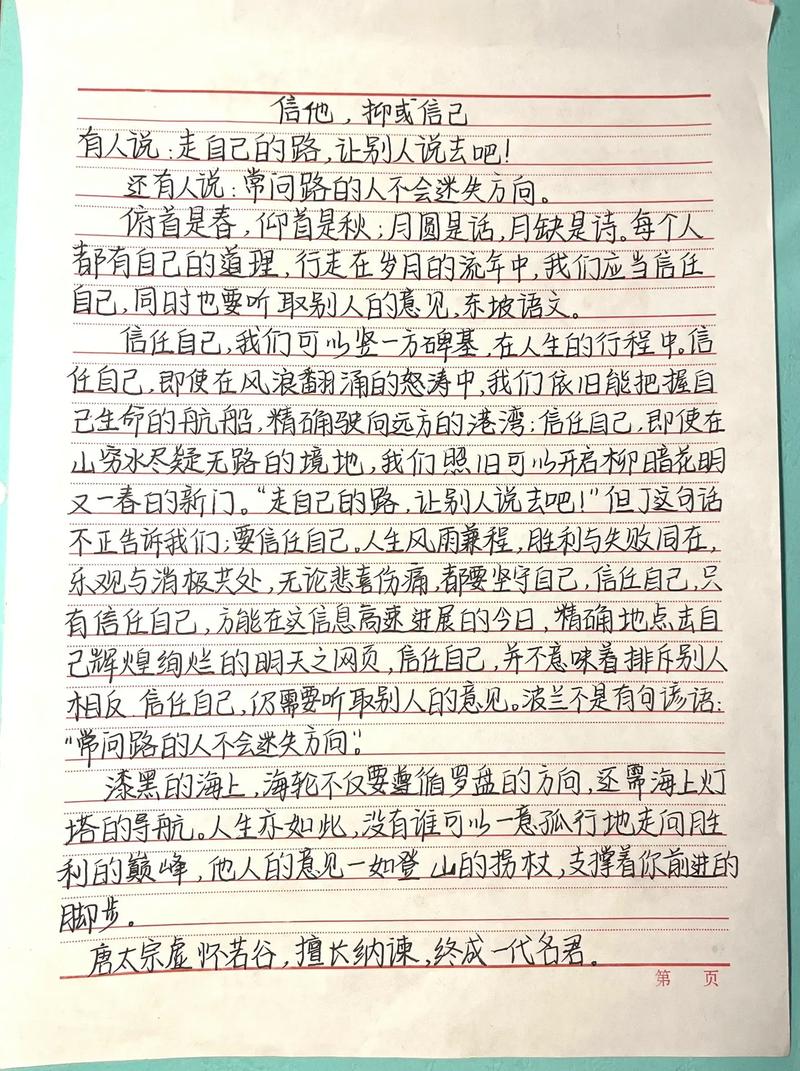 信他，抑或信己
有人说：走自己的路，让别人说去吧！
还有人说：常问路的人不会迷失方向。
俯首是春，仰首是秋；月圆是话，月缺是诗。每个人
都有自己的道理，行走在岁月的流年中，我们应当信任
自己，同时也要听取别人的意见，东坡语文。
信任自己，我们可以竖一方碑基，在人生的行程中。信
任自己，即使在风浪翻涌的怒涛中，我们依旧能把握自
己生命的航船，精确驶向远方的港湾；信任自己，即使在
山穷水尽疑无路的境地，我们照旧可以开启柳暗花明
又一春的新门。“走自己的路，让别人说去吧！”但丁这句话
不正告诉我们；要信任自己。人生风雨兼程，胜利与失败同在，
乐观与消极共处，无论悲喜伤痛，都要坚守自己，信任自己，只
有信任自己，方能在这信息高速进展的今日，精确地点击自
己辉煌绚烂的明天之网页，信任自己，并不意味着排斥别人
相反．信任自己，仍需要听取别人的意见。波兰不是有句谚语：
“常问路的人不会迷失方向”。
漆黑的海上，海轮不仅要遵循罗盘的方向，还需海上灯
塔的导航。人生亦如此，没有谁可以一意孤行地走向胜
利的巅峰，他人的意见一如登山的拐杖，支撑着你前进的
脚步。
唐太宗虚怀若谷，擅长纳谏，终成一代名君。
第 页